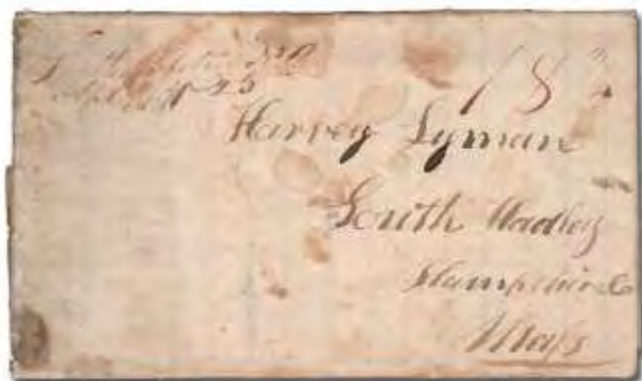 18¾
Harvey Lyman
South Hadley
Hampshire Co
Mass